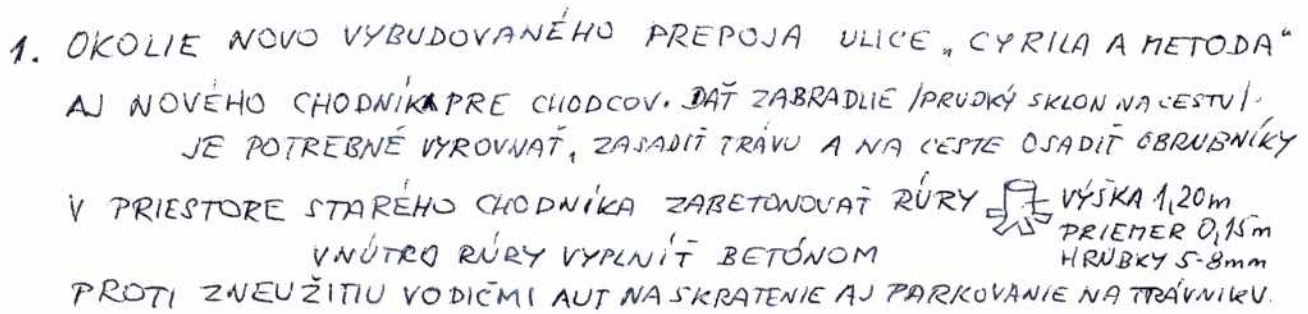 1. OKOLIE NOVO VYBUDOVANÉHO PREPOJA ULICE „CYRILA A METODA“
AJ NOVÉHO CHODNÍKA PRE CHODCOV. DAŤ ZABRADLIE /PRUDKÝ SKLON NA CESTU/.
JE POTREBNÉ VYROVNAŤ, ZASADIŤ TRÁVU A NA CESTE OSADIŤ OBRUBNÍKY
V PRIESTORE STARÉHO CHODNÍKA ZABETONOVAŤ RÚRY VÝŠKA 1,20m
PRIEMER 0,15m
VNÚTRO RÚRY VYPLNIŤ BETÓNOM HRÚBKY 5-8mm
PROTI ZNEUŽITIU VODIČMI AUT NA SKRATENIE AJ PARKOVANIE NA TRÁVNIKU.